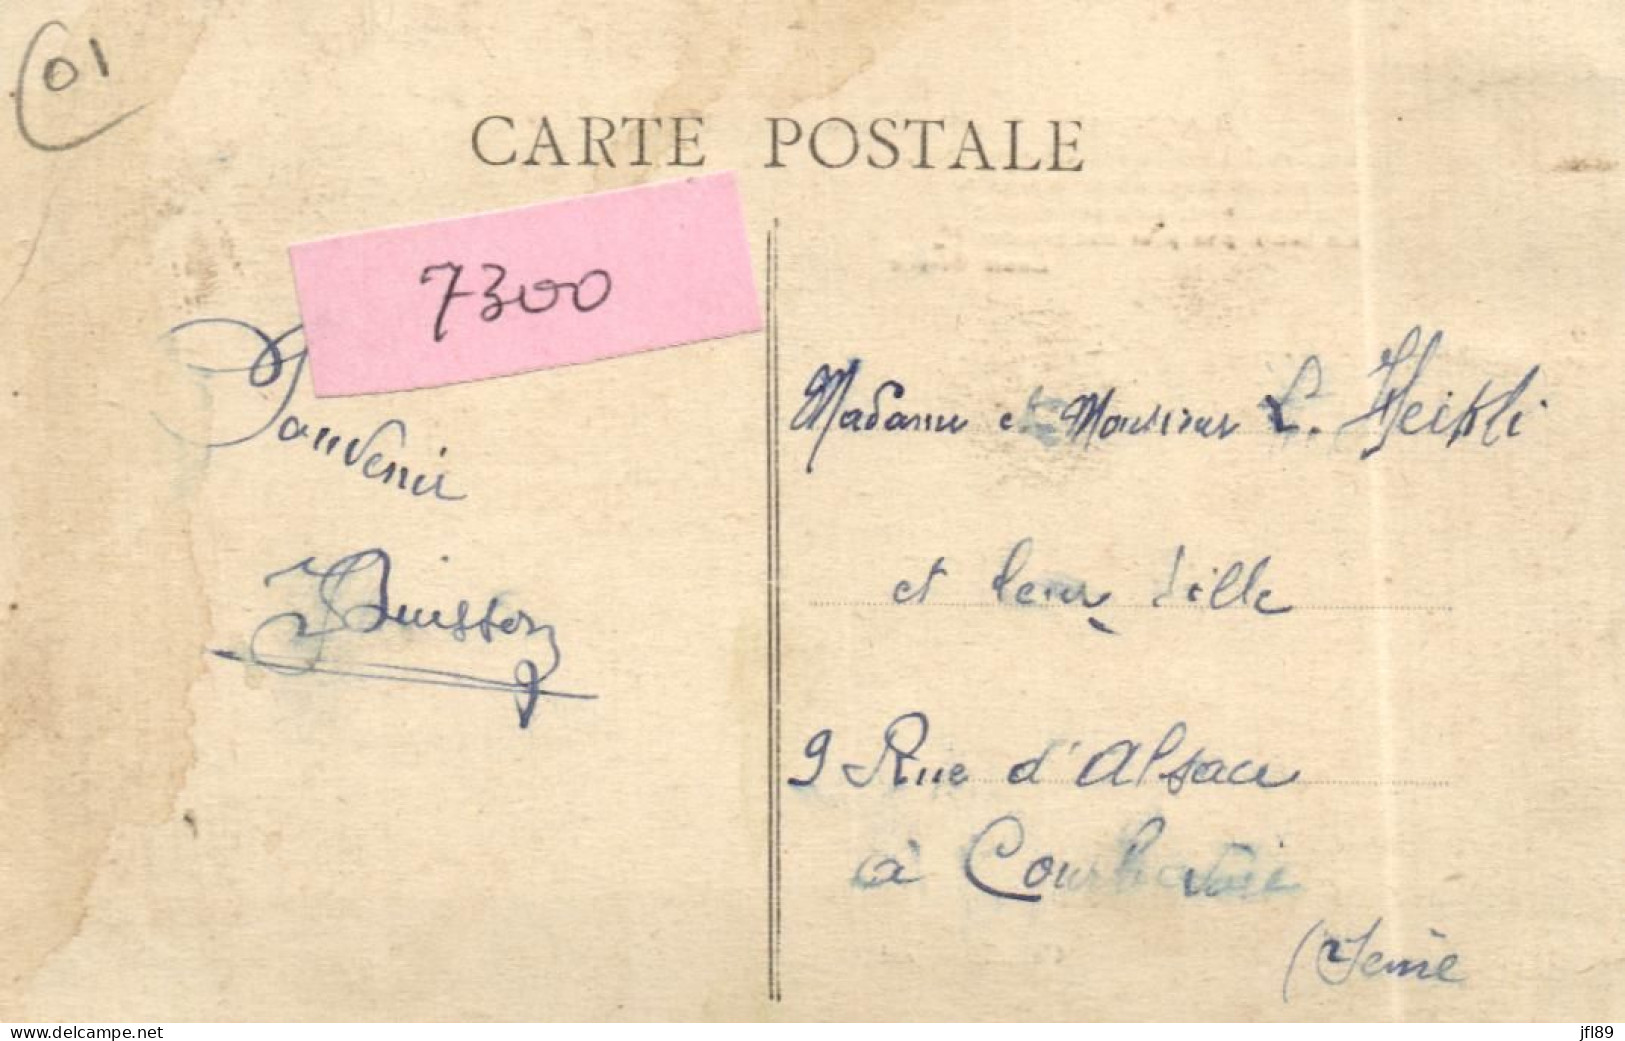 01
CARTE POSTALE
7300
Souvenir
Buisson
Madame et Monsieur L. Weikli
et leur fille
9 Rue d'Alsace
à Courbevoie
(Seine
www.delcampe.net
jfl89